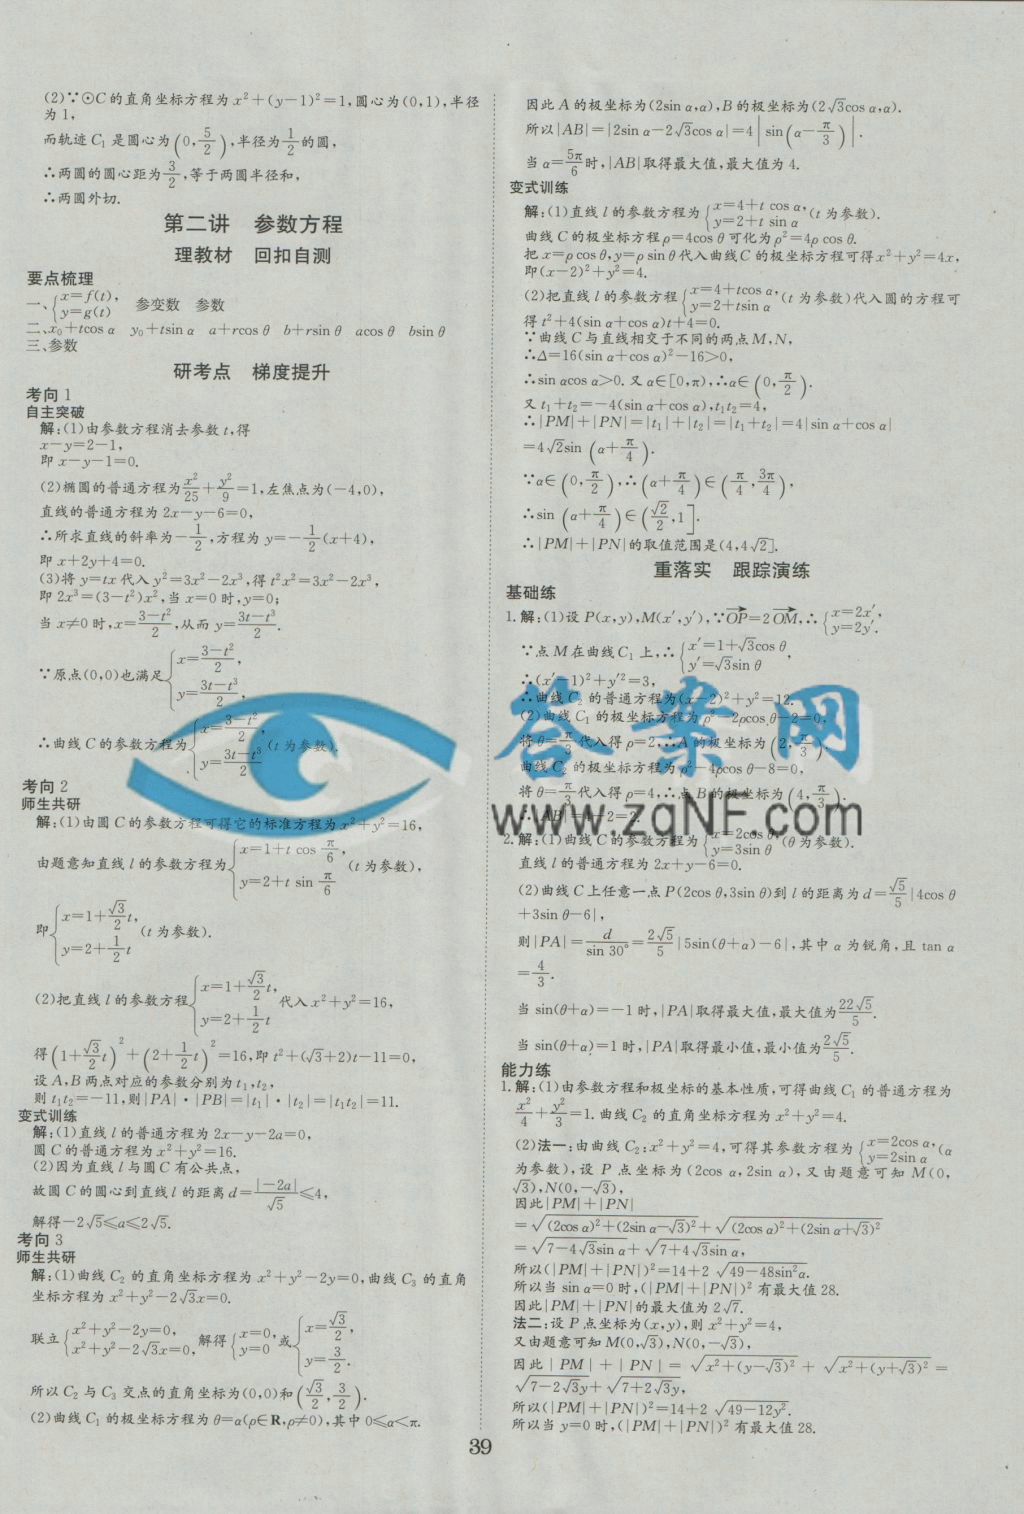 (2)∵⊙C的直角坐标方程为x²+(y-1)²=1,圆心为(0,1),半径
为1,
而轨迹C₁是圆心为(0,5/2),半径为1/2的圆,
∴两圆的圆心距为3/2,等于两圆半径和,
∴两圆外切.
第二讲 参数方程
理教材 回扣自测
要点梳理
一、{x=f(t), y=g(t) 参变数 参数
二、x₀+tcos α y₀+tsin α a+rcos θ b+rsin θ acos θ bsin θ
三、参数
研考点 梯度提升
考向1
自主突破
解:(1)由参数方程消去参数t,得
x-y=2-1,
即x-y-1=0.
(2)椭圆的普通方程为x²/25+y²/9=1,左焦点为(-4,0),
直线的普通方程为2x-y-6=0,
∴所求直线的斜率为-1/2,方程为y=-1/2(x+4),
即x+2y+4=0.
(3)将y=tx代入y²=3x²-2x³,得t²x²=3x²-2x³,
即2x³=(3-t²)x²,当x=0时,y=0;
当x≠0时,x=(3-t²)/2,从而y=(3t-t³)/2.
∵原点(0,0)也满足{x=(3-t²)/2, y=(3t-t³)/2,
∴曲线C的参数方程为{x=(3-t²)/2, y=(3t-t³)/2 (t为参数).
考向2
师生共研
解:(1)由圆C的参数方程可得它的标准方程为x²+y²=16,
由题意知直线l的参数方程为{x=1+t cos π/6, y=2+t sin π/6 (t为参数),
即{x=1+√3/2 t, y=2+1/2 t (t为参数).
(2)把直线l的参数方程{x=1+√3/2 t, y=2+1/2 t 代入x²+y²=16,
得(1+√3/2 t)²+(2+1/2 t)²=16,即t²+(√3+2)t-11=0,
设A,B两点对应的参数分别为t₁,t₂,
则t₁t₂=-11,则|PA|·|PB|=|t₁|·|t₂|=|t₁t₂|=11.
变式训练
解:(1)直线l的普通方程为2x-y-2a=0,
圆C的普通方程为x²+y²=16.
(2)因为直线l与圆C有公共点,
故圆C的圆心到直线l的距离d=|-2a|/√5≤4,
解得-2√5≤a≤2√5.
考向3
师生共研
解:(1)曲线C₂的直角坐标方程为x²+y²-2y=0,曲线C₃的直角
坐标方程为x²+y²-2√3x=0.
联立{x²+y²-2y=0, x²+y²-2√3x=0, 解得{x=0, y=0 或{x=√3/2, y=3/2.
所以C₂与C₃交点的直角坐标为(0,0)和(√3/2,3/2).
(2)曲线C₁的极坐标方程为θ=α(ρ∈R,ρ≠0),其中0≤α<π.
因此A的极坐标为(2sin α,α),B的极坐标为(2√3cos α,α).
所以|AB|=|2sin α-2√3cos α|=4|sin(α-π/3)|.
当α=5π/6时,|AB|取得最大值,最大值为4.
变式训练
解:(1)直线l的参数方程为{x=4+t cos α, y=2+t sin α (t为参数).
曲线C的极坐标方程ρ=4cos θ可化为ρ²=4ρcos θ.
把x=ρcos θ,y=ρsin θ代入曲线C的极坐标方程可得x²+y²=4x,
即(x-2)²+y²=4.
(2)把直线l的参数方程{x=4+tcos α, y=2+tsin α (t为参数)代入圆的方程可
得t²+4(sin α+cos α)t+4=0.
∵曲线C与直线相交于不同的两点M,N,
∴Δ=16(sin α+cos α)²-16>0,
∴sin αcos α>0.又α∈[0,π),∴α∈(0,π/2).
又t₁+t₂=-4(sin α+cos α),t₁t₂=4,
∴|PM|+|PN|=|t₁|+|t₂|=|t₁+t₂|=4|sin α+cos α|
=4√2sin(α+π/4).
∵α∈(0,π/2),∴(α+π/4)∈(π/4,3π/4),
∴sin(α+π/4)∈(√2/2,1].
∴|PM|+|PN|的取值范围是(4,4√2].
重落实 跟踪演练
基础练
1.解:(1)设P(x,y),M(x′,y′),∵OP→=2OM→,∴{x=2x′, y=2y′.
∵点M在曲线C₁上,∴{x′=1+√3cos θ, y′=√3sin θ,
∴(x′-1)²+y′²=3,
∴曲线C₂的普通方程为(x-2)²+y²=12.
(2)曲线C₁的极坐标方程为ρ²-2ρcos θ-2=0,
将θ=π/3代入得ρ=2,∴A的极坐标为(2,π/3).
曲线C₂的极坐标方程为ρ²-4ρcos θ-8=0,
将θ=π/3代入得ρ=4,∴点B的极坐标为(4,π/3).
∴|AB|=4-2=2.
2.解:(1)曲线C的参数方程为{x=2cos θ, y=3sin θ (θ为参数).
直线l的普通方程为2x+y-6=0.
(2)曲线C上任意一点P(2cos θ,3sin θ)到l的距离为d=√5/5|4cos θ
+3sin θ-6|,
则|PA|=d/sin 30°=2√5/5|5sin(θ+α)-6|,其中α为锐角,且tan α
=4/3.
当sin(θ+α)=-1时,|PA|取得最大值,最大值为22√5/5.
当sin(θ+α)=1时,|PA|取得最小值,最小值为2√5/5.
能力练
1.解:(1)由参数方程和极坐标的基本性质,可得曲线C₁的普通方程为
x²/4+y²/3=1.曲线C₂的直角坐标方程为x²+y²=4.
(2)法一:由曲线C₂:x²+y²=4,可得其参数方程为{x=2cos α, y=2sin α (α
为参数),设P点坐标为(2cos α,2sin α),又由题意可知M(0,
√3),N(0,-√3),
因此|PM|+|PN|
=√((2cos α)²+(2sin α-√3)²)+√((2cos α)²+(2sin α+√3)²)
=√(7-4√3sin α)+√(7+4√3sin α),
所以(|PM|+|PN|)²=14+2√(49-48sin²α).
所以当sin α=0时,(|PM|+|PN|)²有最大值28.
因此|PM|+|PN|的最大值为2√7.
法二:设P点坐标为(x,y),则x²+y²=4,
又由题意可知M(0,√3),N(0,-√3),
因此|PM|+|PN|=√(x²+(y-√3)²)+√(x²+(y+√3)²)=
√(7-2√3y)+√(7+2√3y),
所以(|PM|+|PN|)²=14+2√(49-12y²).
所以当y=0时,(|PM|+|PN|)²有最大值28.
39
答案网
www.zqNF.com